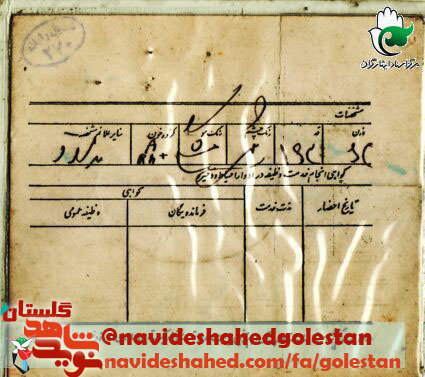 مرکز اسناد ایثارگران
۲۷۰
مشخصات
وزن
قد
رنگ چشم
رنگ مو
گروه خون
سایر علائم مشخصه
A
Rh+
ندارد
گواهی انجام خدمت وظیفه در ادوار احتیاط و ذخیره
تاریخ احضار
مدت خدمت
گواهی
فرمانده یگان
وظیفه عمومی
گلستان
نوید شاهد
@navideshahedgolestan
navideshahed.com/fa/golestan